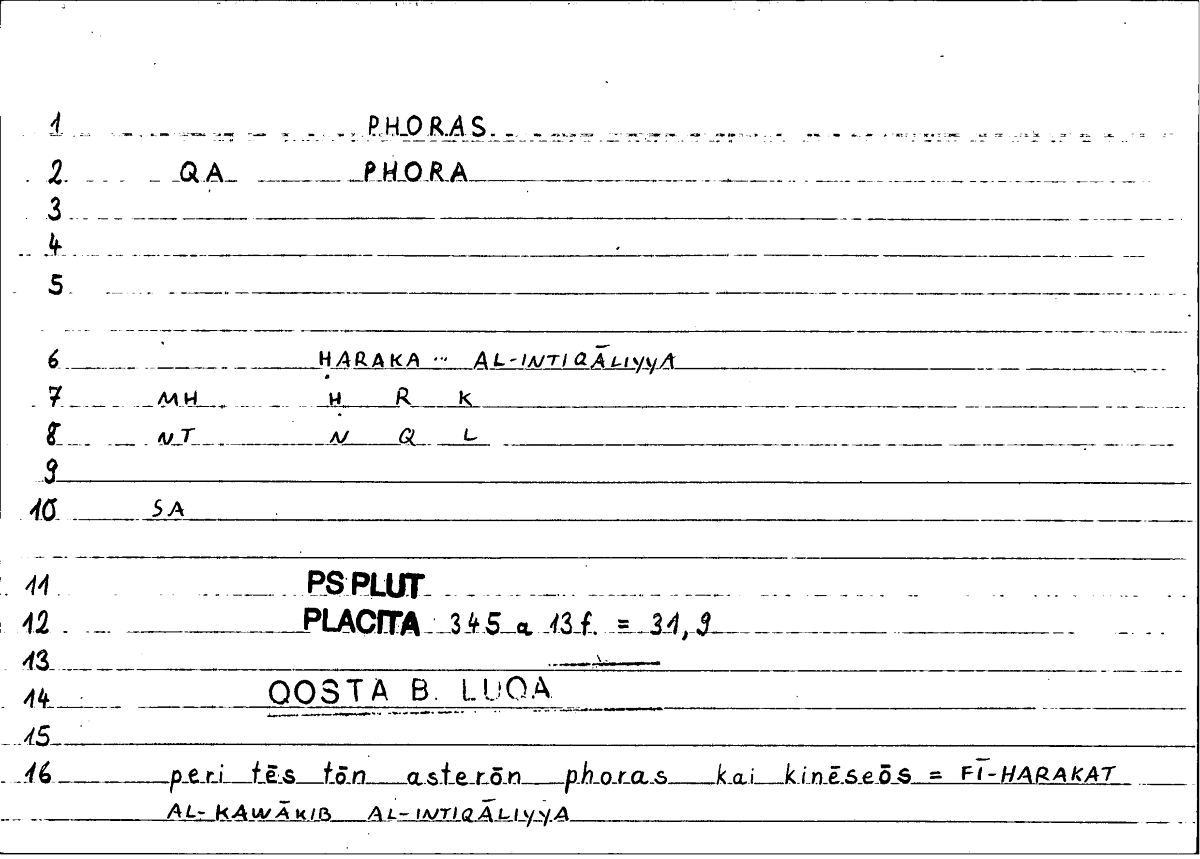 1 PHORAS
2 QA PHORA
3
4
5
6 ḤARAKA ... AL-INTIQĀLIYYA
7 MH Ḥ R K
8 NT N Q L
9
10 SA
11 PS PLUT
12 PLACITA 345 a 13 f. = 31,9
13
14 QOSTA B. LUQA
15
16 peri tēs tōn asterōn phoras kai kinēseōs = FĪ-HARAKAT
AL-KAWĀKIB AL-INTIQĀLIYYA